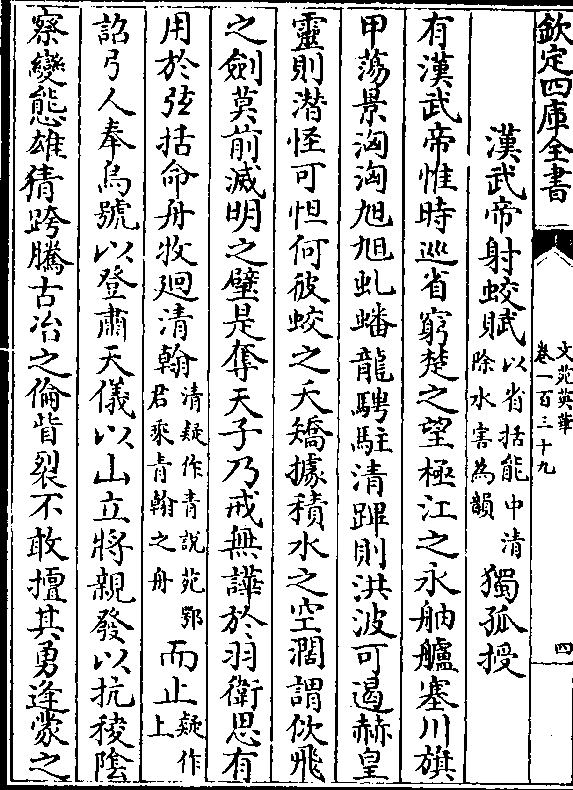 欽定四庫全書
文苑英華
卷一百三十九
四
漢武帝射蛟賦以省括能中清除水害為韻 獨孤授
有漢武帝惟時巡省窮楚之望極江之永舳艫塞川旗
甲蕩景洶洶旭旭虬蟠龍騁駐清蹕則洪波可遏赫皇
靈則潛怪可怛何彼蛟之夭矯據積水之空濶謂佽飛
之劍莫前滅明之璧是奪天子乃戒無譁於羽衛思有
用於弦括命舟牧廻清翰清疑作青說苑鄂君乘青翰之舟而止疑作上
詔弓人奉烏號以登肅天儀以山立將親發以抗稜陰
察變態雄猜跨騰古冶之倫眥裂不敢擅其勇逢蒙之